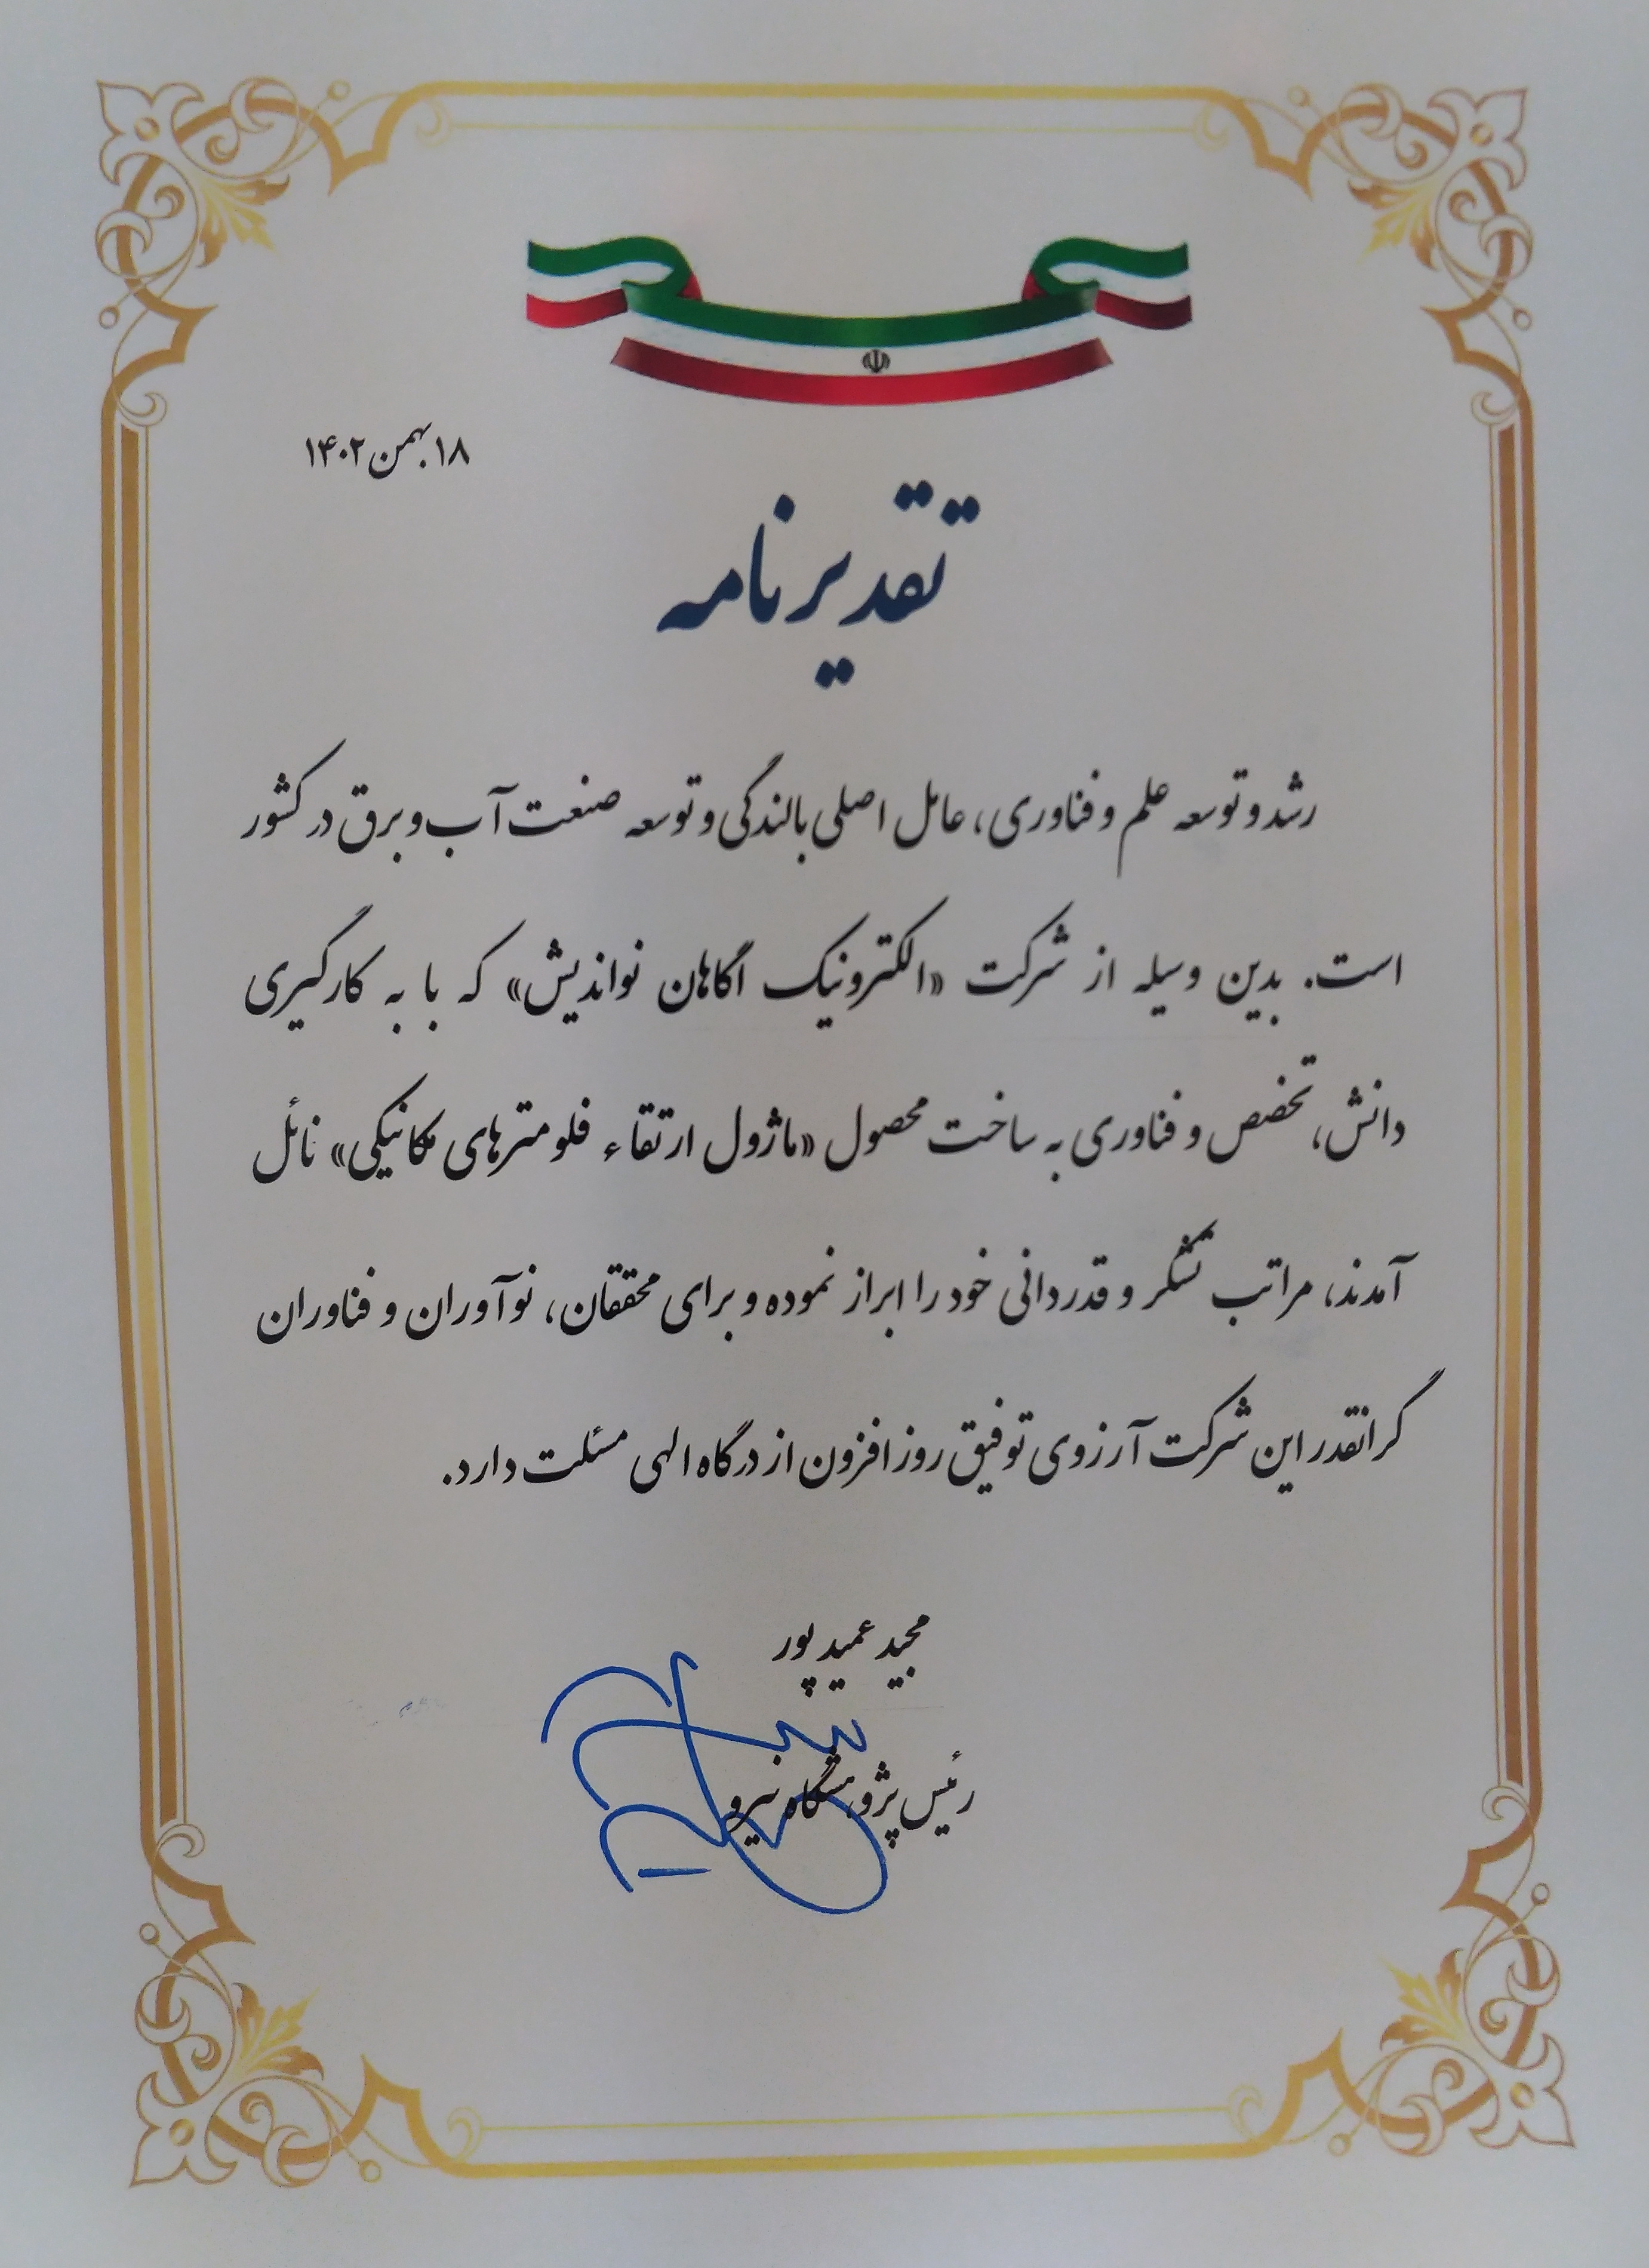 ۱۸ بهمن ۱۴۰۲
تقدیرنامه
رشد و توسعه علم و فناوری، عامل اصلی بالندگی و توسعه صنعت آب و برق در کشور
است. بدین وسیله از شرکت «الکترونیک آگاهان نواندیش» که با به کارگیری
دانش، تخصص و فناوری به ساخت محصول «ماژول ارتقاء فلومترهای مکانیکی» نائل
آمدند، مراتب تشکر و قدردانی خود را ابراز نموده و برای محققان، نوآوران و فناوران
گرانقدر این شرکت آرزوی توفیق روز افزون از درگاه الهی مسئلت دارد.
مجید عمیدپور
رئیس پژوهشگاه نیرو